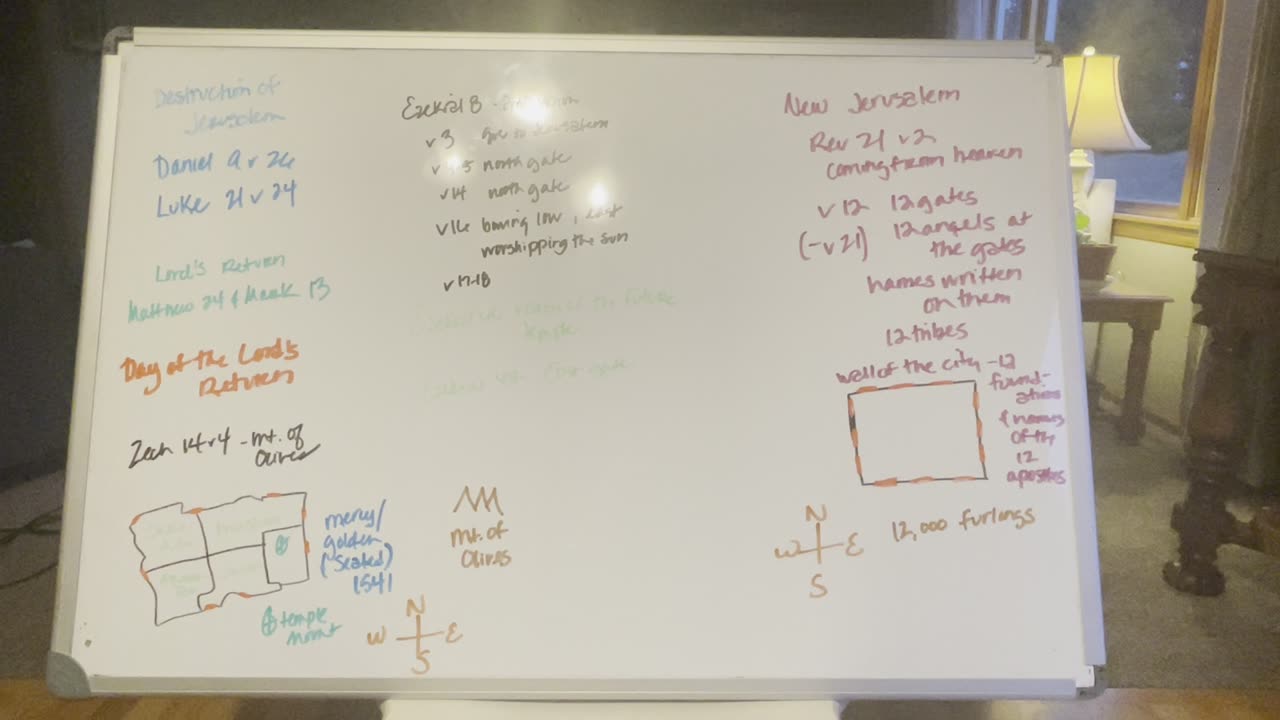 Destruction of
Jerusalem
Daniel 9 v 26
Luke 21 v 24
Lord's Return
Matthew 24 & Mark 13
Day of the Lord's
Return
Zech 14 v 4 - Mt. of
Olives
mercy/
golden
(Sealed)
1541
temple
mount
N
W E
S
Ezekial 8
v 3 Jerusalem
north gate
v 14 north gate
v 16 bowing low, east
worshipping the sun
v 17-18
of the future
temple
gate
Mt. of
Olives
New Jerusalem
Rev 21 v 2
coming from heaven
v 12 12 gates
(-v 21) 12 angels at
the gates
names written
on them
12 tribes
wall of the city - 12
found-
ations
& names
of the
12
apostles
N
W E
S
12,000 furlongs